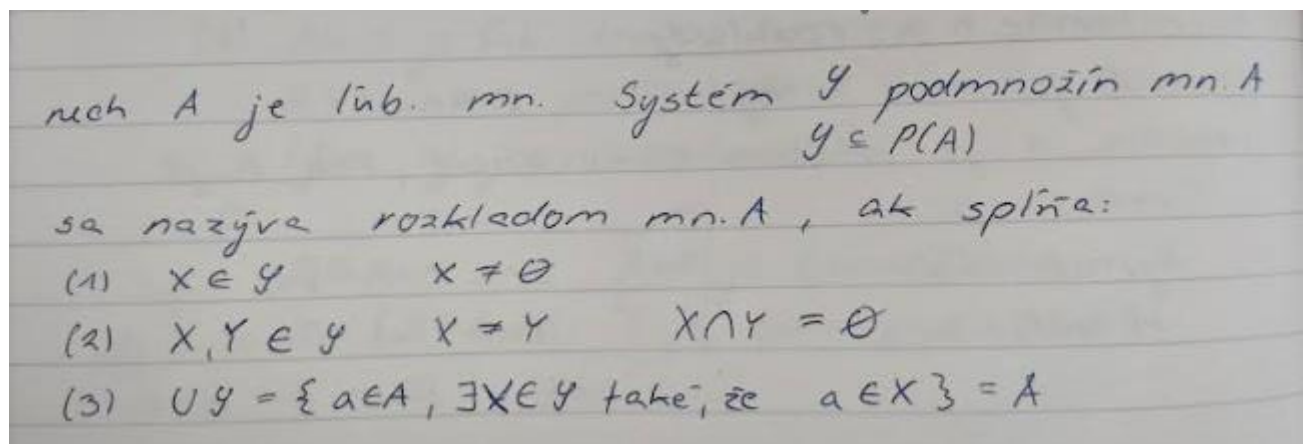 nech A je ľub. mn. Systém 𝒴 podmnožín mn. A
𝒴 ⊆ P(A)
sa nazýva rozkladom mn. A, ak spĺňa:
(1) X ∈ 𝒴 X ≠ ∅
(2) X, Y ∈ 𝒴 X ≠ Y X ∩ Y = ∅
(3) ∪𝒴 = { a ∈ A, ∃X ∈ 𝒴 také, že a ∈ X } = A